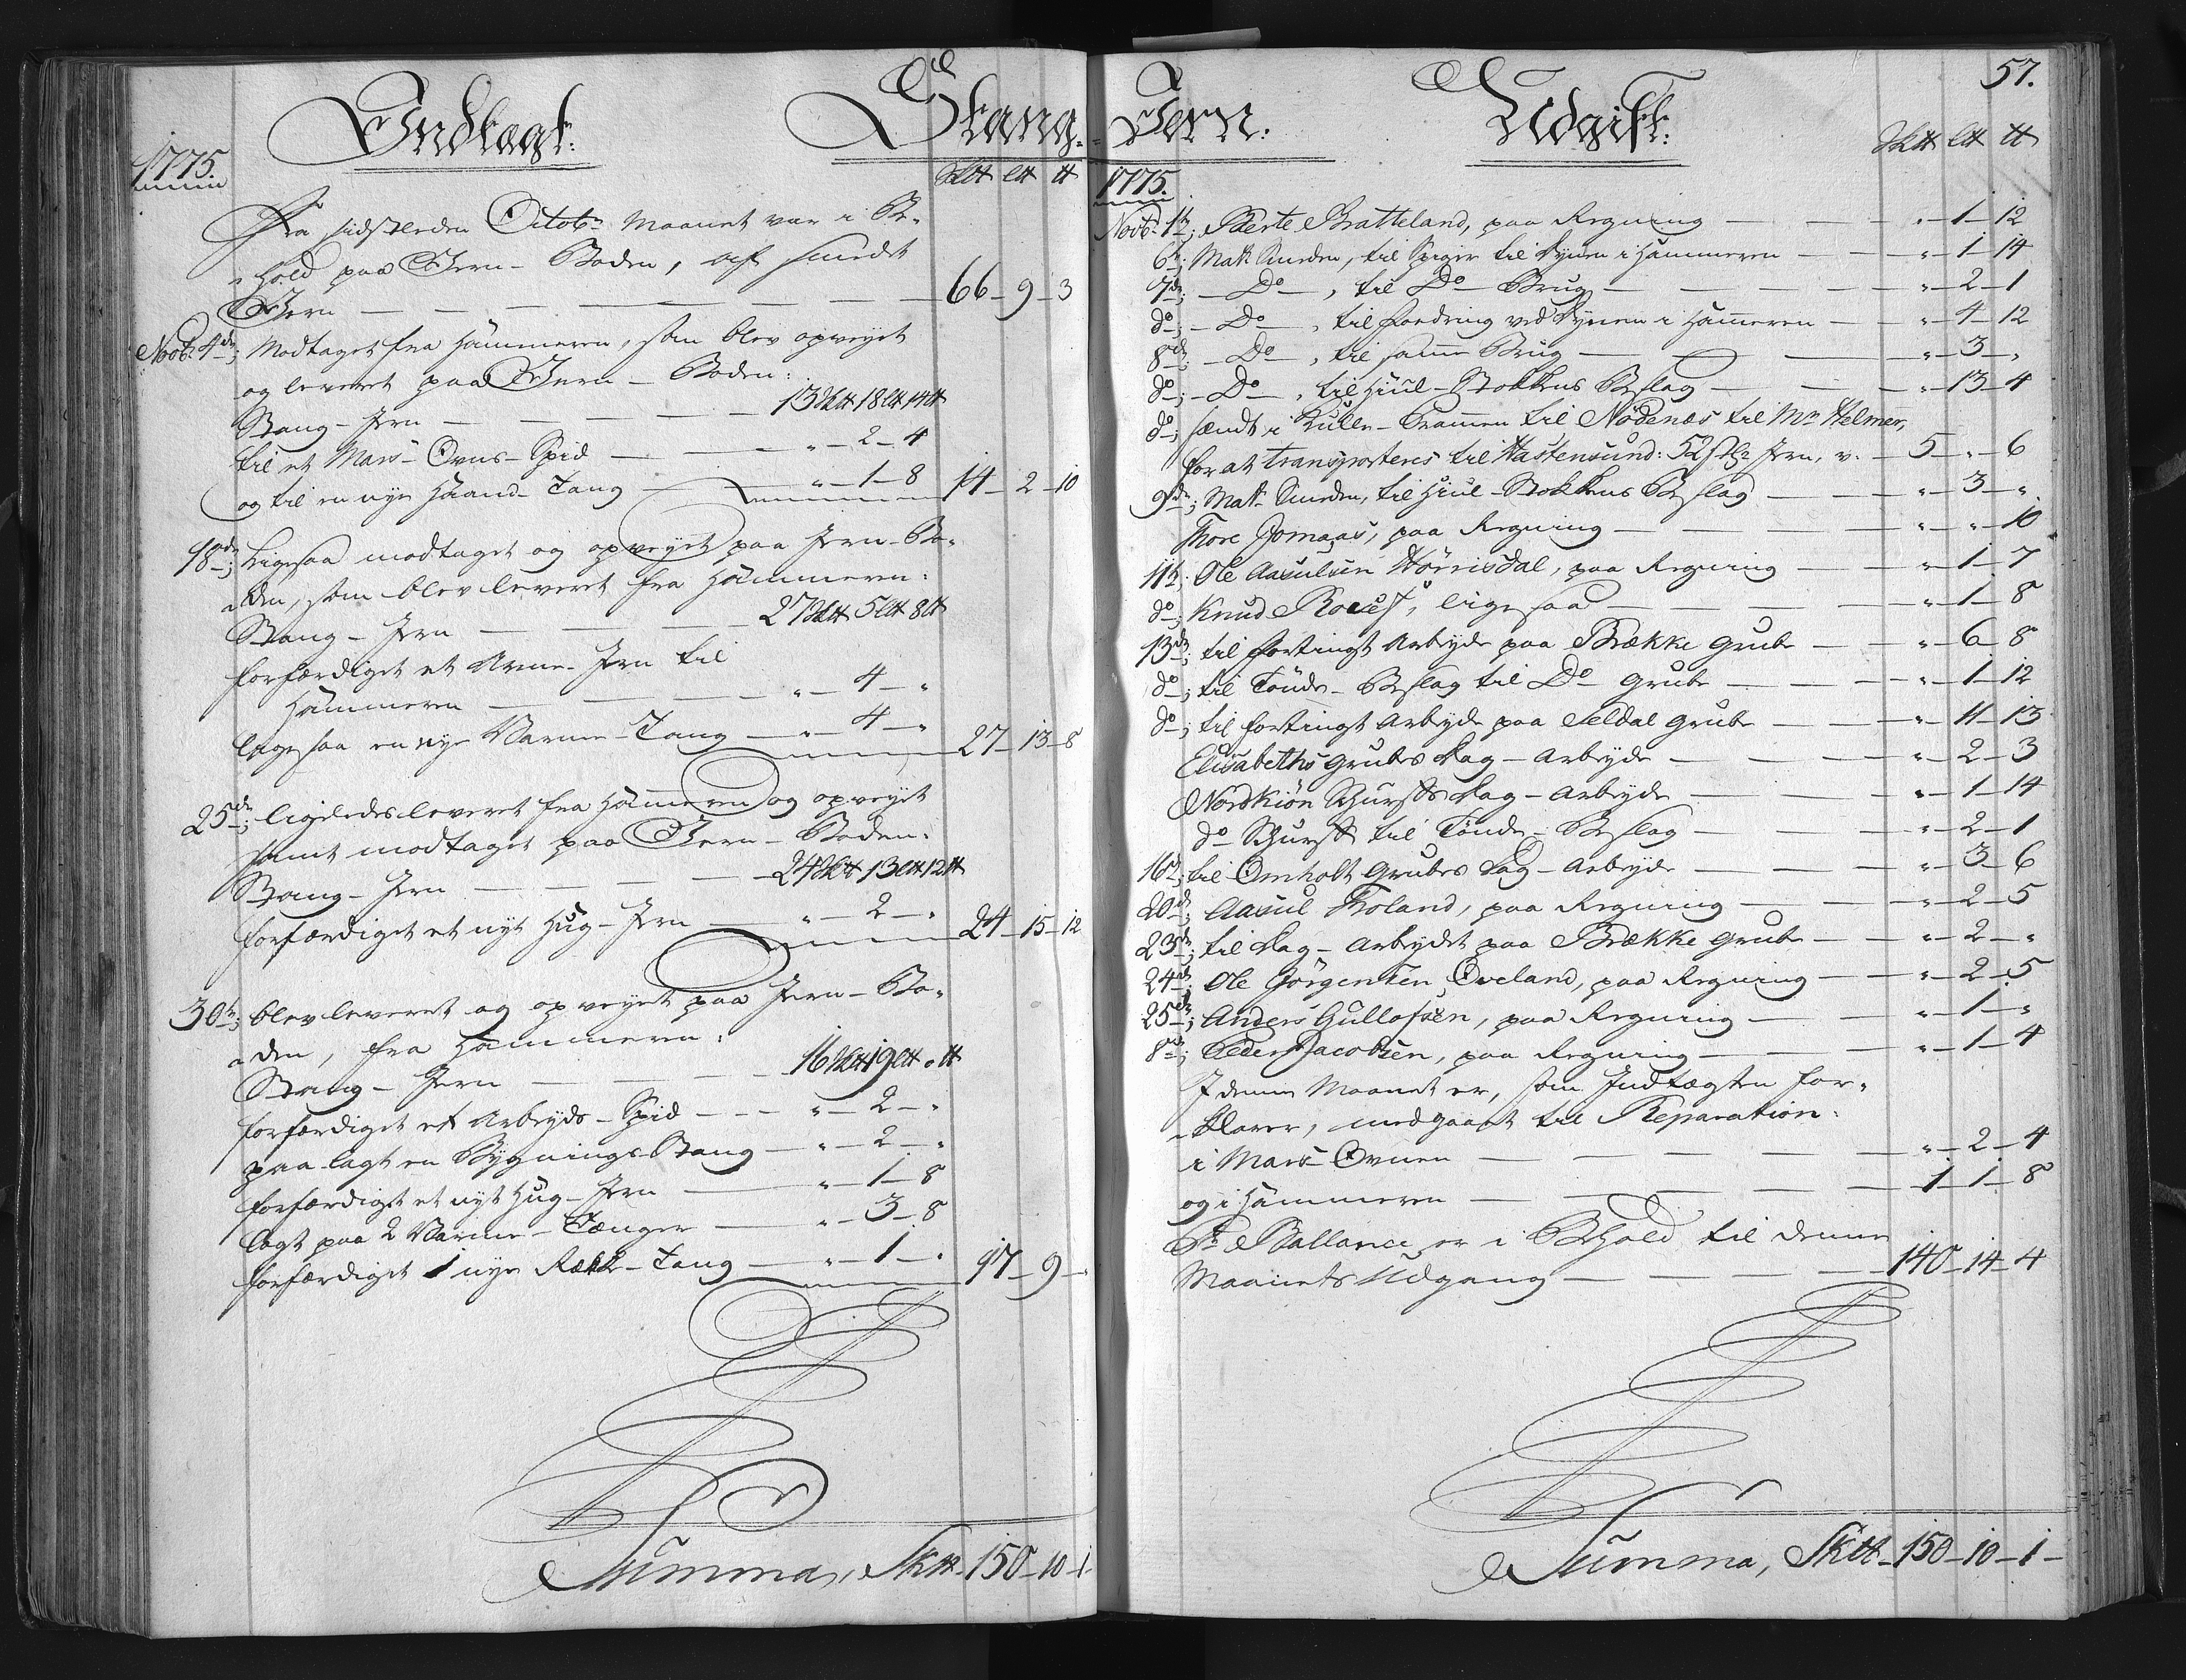 Indtægt.
Stang-
1775.
Sk℔ l℔ ℔
Fra sidstleden Octobr Maanet var i Be-
hold paa Jern-Boden, af smedt
Jern — 66 - 9 - 3
Novbr 4de; Modtaget fra Hammeren, som blev opveyet
og leveret paa Jern-Boden:
Stang-Jern — 13 Sk℔ 18 l℔ 14 ℔
til et Mars-Ovns-Spid — " - 2 - 4
og til en nye Haand-Tang — " - 1 - 8 14 - 2 - 10
18de; Ligesaa modtaget og opveyet paa Jern-Bo-
den, som blev leveret fra Hammeren:
Stang-Jern — 27 Sk℔ 5 l℔ 8 ℔
forfærdiget et Jern til
Hammeren — " - 4 - "
ligesaa en nye Varme-Tang — " - 4 - " 27 - 13 - 8
25de; ligeledes leveret fra Hammeren og opveyet
samt modtaget paa Jern-Boden:
Stang-Jern — 24 Sk℔ 13 l℔ 12 ℔
forfærdiget et nyt Hug-Jern — " - 2 - " 24 - 15 - 12
30te; blev leveret og opveyet paa Jern-Bo-
den, fra Hammeren:
Stang-Jern — 16 Sk℔ 19 l℔ " ℔
forfærdiget et Arbeyds-Spid — " - 2 - "
paa lagt en Bygnings-Stang — " - 2 - "
forfærdiget et nyt Hug-Jern — " - 1 - 8
lagt paa 2 Varme-Tænger — " - 3 - 8
forfærdiget 1 nye Rækk-Tang — " - 1 - " 17 - 9 - "
Summa, Sk℔ - 150 - 10 - 1
57.
Jern.
Udgift.
Sk℔ l℔ ℔
1775.
Novbr 1te; Bærte Bratteland, paa Regning — " - 1 - 12
6te; Mak Smeden, til Spiger til Dynen i Hammeren — " - 1 - 14
7de; - Do - , til Do Brug — " - 2 - 1
do; - Do - , til foedring ved Dynen i Hammeren — " - 4 - 12
8de; - Do - , til samme Brug — " - 3 - "
do; - Do - , til Hiul-Stokkens Beslag — " - 13 - 4
do; sendt i Kulle-Prammen til Nødenæs til Mr Helmer,
for at transporteres til Hastensund: 52 Stk: Jern, v. — 5 - " - 6
9de; Mak Smeden, til Hiul-Stokkens Beslag — " - 3 - "
Thore Jomaas, paa Regning — " - " - 10
11te; Ole Aasulsen Hørrisdal, paa Regning — " - 1 - 7
do; Knud ligesaa — " - 1 - 8
13de; til fortingt Arbeyde paa Brække Grube — " - 6 - 8
do; til Tønde-Beslag til Do Grube — " - 1 - 12
do; til fortingt Arbeyde paa Seldal Grube — " - 11 - 13
Elisabeths Grubes Dag-Arbeyde — " - 2 - 3
Nordkiøn Skursts Dag-Arbeyde — " - 1 - 14
do Skurst til Tønde-Beslag — " - 2 - 1
16de; til Omholt Grubes Dag-Arbeyde — " - 3 - 6
20de; Aasul Froland, paa Regning — " - 2 - 5
23de; til Dag-Arbeydet paa Brække Grube — " - 2 - "
24de; Ole Jørgensen Oveland, paa Regning — " - 2 - 5
25de; Anders Gullofsen, paa Regning — " - 1 - "
8de; Peder Jacobsen, paa Regning — " - 1 - 4
I denne Maanet er, som Indtægten for-
klarer, medgaaet til Reparation:
i Mars-Ovnen — " - 2 - 4
og i Hammeren — 1 - 1 - 8
Pr Ballance er i Behold til denne
Maanets Udgang — 140 - 14 - 4
Summa, Sk℔ - 150 - 10 - 1 -